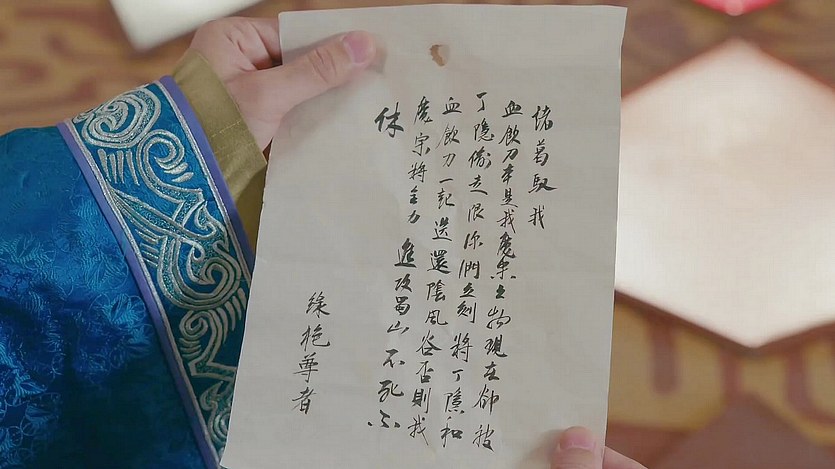 诸葛驭我
血飲刀本是我魔宗之物現在卻被
丁隱偷走限你們立刻將丁隱和
血飲刀一起送還陰風谷否則我
魔宗將全力進攻蜀山不死不
休
绿袍尊者